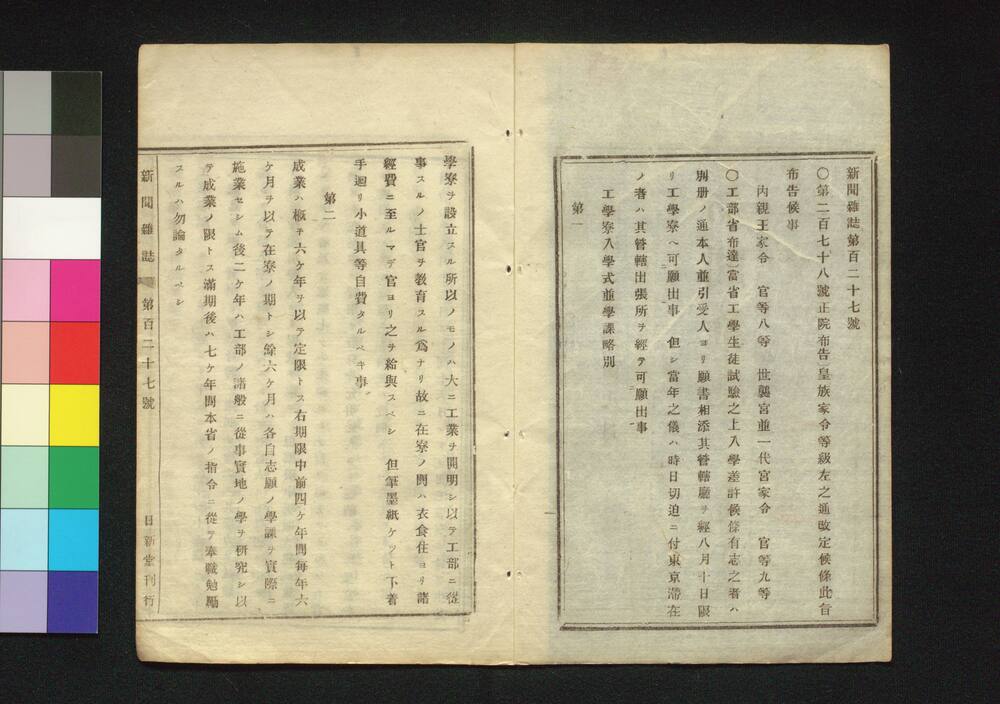 新聞雜誌第百二十七號
〇第二百七十八號正院布告皇族家令等級左之通改定候條此旨
布告候事
內親王家令 官等八等 世襲宮並一代宮家令 官等九等
〇工部省布達當省工學生徒試驗之上入學差許候條有志之者ハ
別册ノ通本人並引受人ヨリ願書相添其管轄廳ヲ經八月十日限
リ工學寮ヘ可願出事 但シ當年之儀ハ時日切迫ニ付東京滯在
ノ者ハ其管轄出張所ヲ經テ可願出事
工學寮入學式並學課略別
第一
學寮ヲ設立スル所以ノモノハ大ニ工業ヲ開明シ以テ工部ニ從
事スルノ士官ヲ敎育スル爲ナリ故ニ在寮ノ間ハ衣食住ヨリ諸
經費ニ至ルマデ官ヨリ之ヲ給與スベシ 但筆墨紙ケツト下着
手廻リ小道具等自費タルベキ事
第二
成業ハ槪子六ケ年ヲ以テ定限トス右期限中前四ケ年間每年六
ケ月ヲ以テ在寮ノ期トシ餘六ケ月ハ各自志願ノ學課ヲ實際ニ
施業セシム後二ケ年ハ工部ノ諸般ニ從事實地ノ學ヲ研究シ以
テ成業ノ限トス滿期後ハ七ケ年間本省ノ指令ニ從テ奉職勉勵
スルハ勿論タルベシ
新聞雜誌 第百二十七號 日新堂刊行